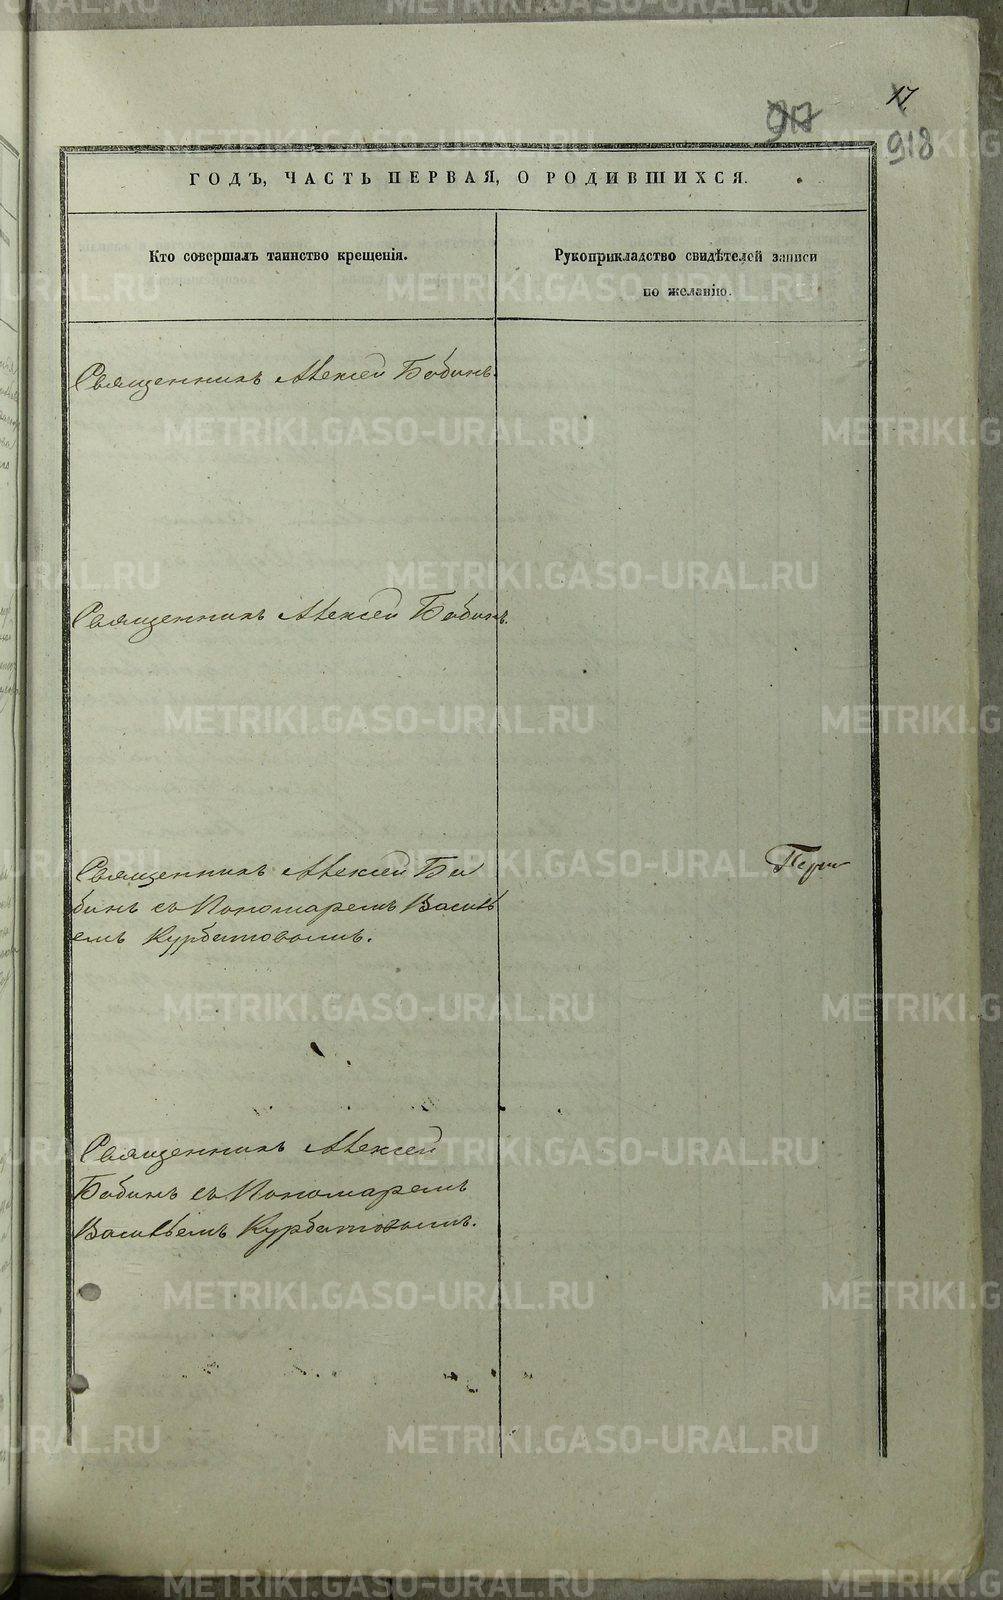 17
917
918
ГОДЪ, ЧАСТЬ ПЕРВАЯ, О РОДИВШИХСЯ.
Кто совершалъ таинство крещенія.
Рукоприкладство свидѣтелей записи
по желанію.
Священникъ Алексей Бабинъ.
Священникъ Алексей Бабинъ.
Священникъ Алексей Ба
бинъ съ Пономаремъ Василь
емъ Курбатовымъ.
Священникъ Алексей
Бабинъ съ Пономаремъ
Васильемъ Курбатовымъ.
METRIKI.GASO-URAL.RU